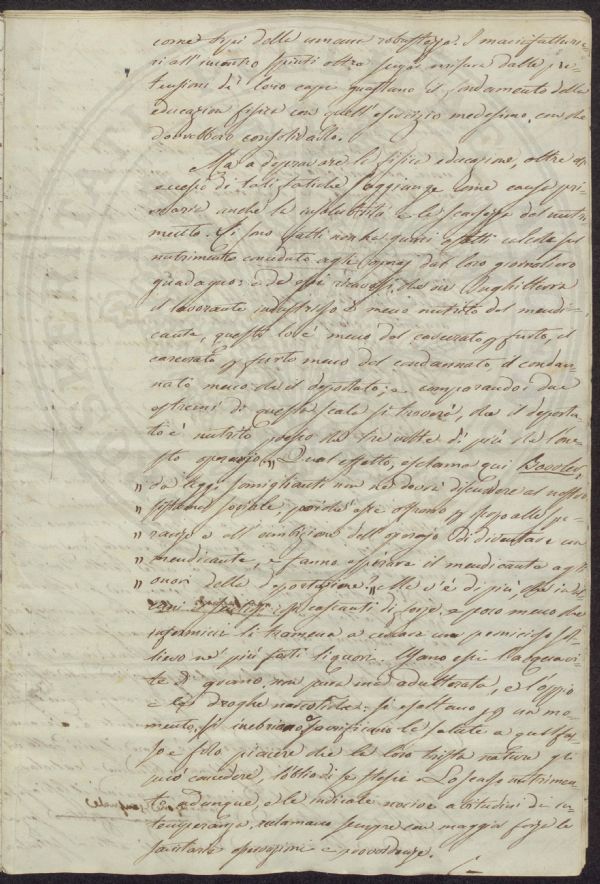 come tipi della umana robustezza. I manifatturie-
ri all'incontro spinti oltra ogni misura dalle pre-
tensioni de' loro capi guastano il fondamento della
educazion fisica con quell'esercizio medesimo, con che
dovrebbero consolidarlo.
Ma a depravare la fisica educazione, oltre all'
eccesso di tali fatiche s'aggiunge come causa pri-
maria anche la insalubrità e la scarsezza del nutri-
mento. Si sono fatti non ha guari esatti calcoli sul
nutrimento conceduto agli operaj dal loro giornaliero
guadagno: e da essi ricavossi, che in Inghilterra
il lavorante industrioso è meno nutrito del mendi-
cante, questi lo è meno del carcerato per furto, il
carcerato per furto meno del condannato, il condan-
nato meno che il deportato; e comparando i due
estremi di questa scala si troverà, che il deporta-
to è nutrito presso che tre volte di più che l'one-
sto operajo. „ Qual effetto, esclama qui
„ da leggi somiglianti non ha desso a discendere al nostro
„ sistema sociale, poichè esse offrono per sprone alla spe-
„ ranza e all'ambizione dell'operajo di diventare un
„ mendicante, e fanno aspirare il mendicante agli
„ onori della deportazione? „ Ma v'è di più, che i
cascanti di forze, e poco meno che
infermicci li tramena a cercare un pernicioso sol-
lievo ne' più forti liquori. Usano essi l'acquavi-
te di grano non pura ma adulterata, e l'oppio
e le droghe narcotiche: si esaltano per un mo-
mento, si inebriano e sacrificano la salute a quel fal-
so e solo piacere che la loro trista natura
può concedere, l'obblio di se stessi. Lo scarso nutrimen-
to adunque, e le indicate nocive abitudini di in-
temperanza reclamano sempre con maggior forza le
sanitarie operazioni e provvidenze.